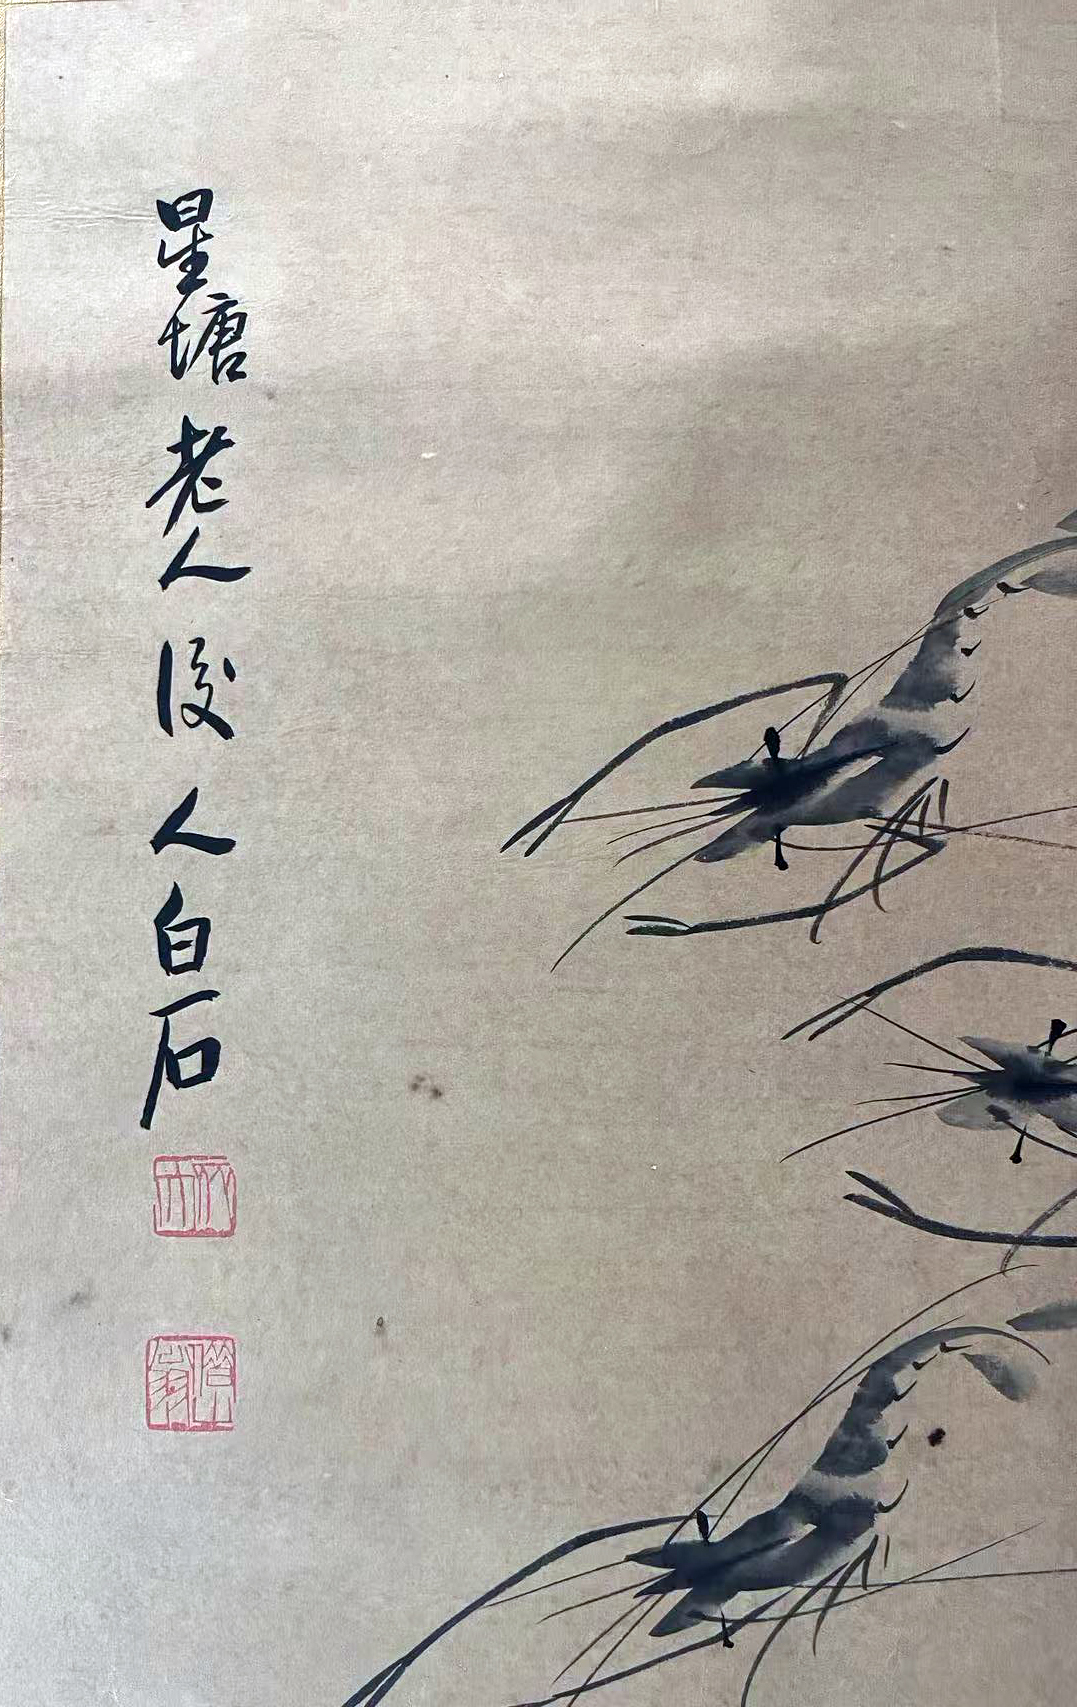 星塘老人後人白石